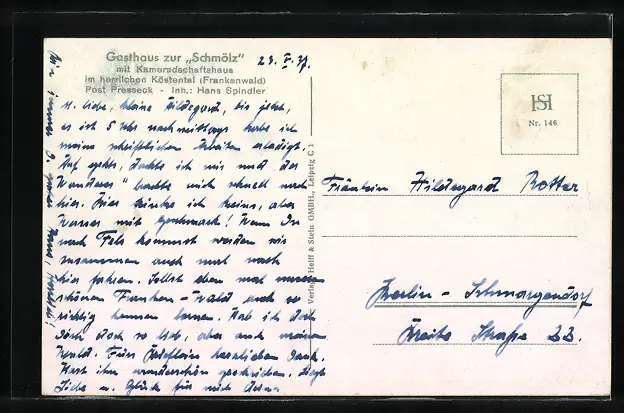 Gasthaus zur „Schmölz"
mit Kameradschaftshaus
im herrlichen Köstental (Frankenwald)
Post Presseck - Inh.: Hans Spindler
23. V. 37.
M. liebe, kleine Hildegard, bis jetzt,
es ist 5 Uhr nachmittags habe ich
meine schriftlichen Arbeiten erledigt.
Auf geht's, dachte ich mir und der
"Wanderer" brachte mich schnell nach
hier. Hier trinke ich keins, aber
Wasser mit Geschmack! Wenn Du
nach Fels kommst werden wir
zusammen auch mal nach
hier fahren. Sollst eben mal unseren
schönen Franken-Wald auch so
richtig kennen lernen. Hab ich doch
Dich doch so lieb, aber auch meinen
Wald. Fürs Brieflein herzlichen Dank.
Hast ihn wunderschön geschrieben.
Liebe u. Glück für mich
Verlag Heiff & Stein GMBH., Leipzig C 1
HS
Nr. 146
Fräulein Hildegard Rotter
Berlin - Schmargendorf
Breite Straße 22.